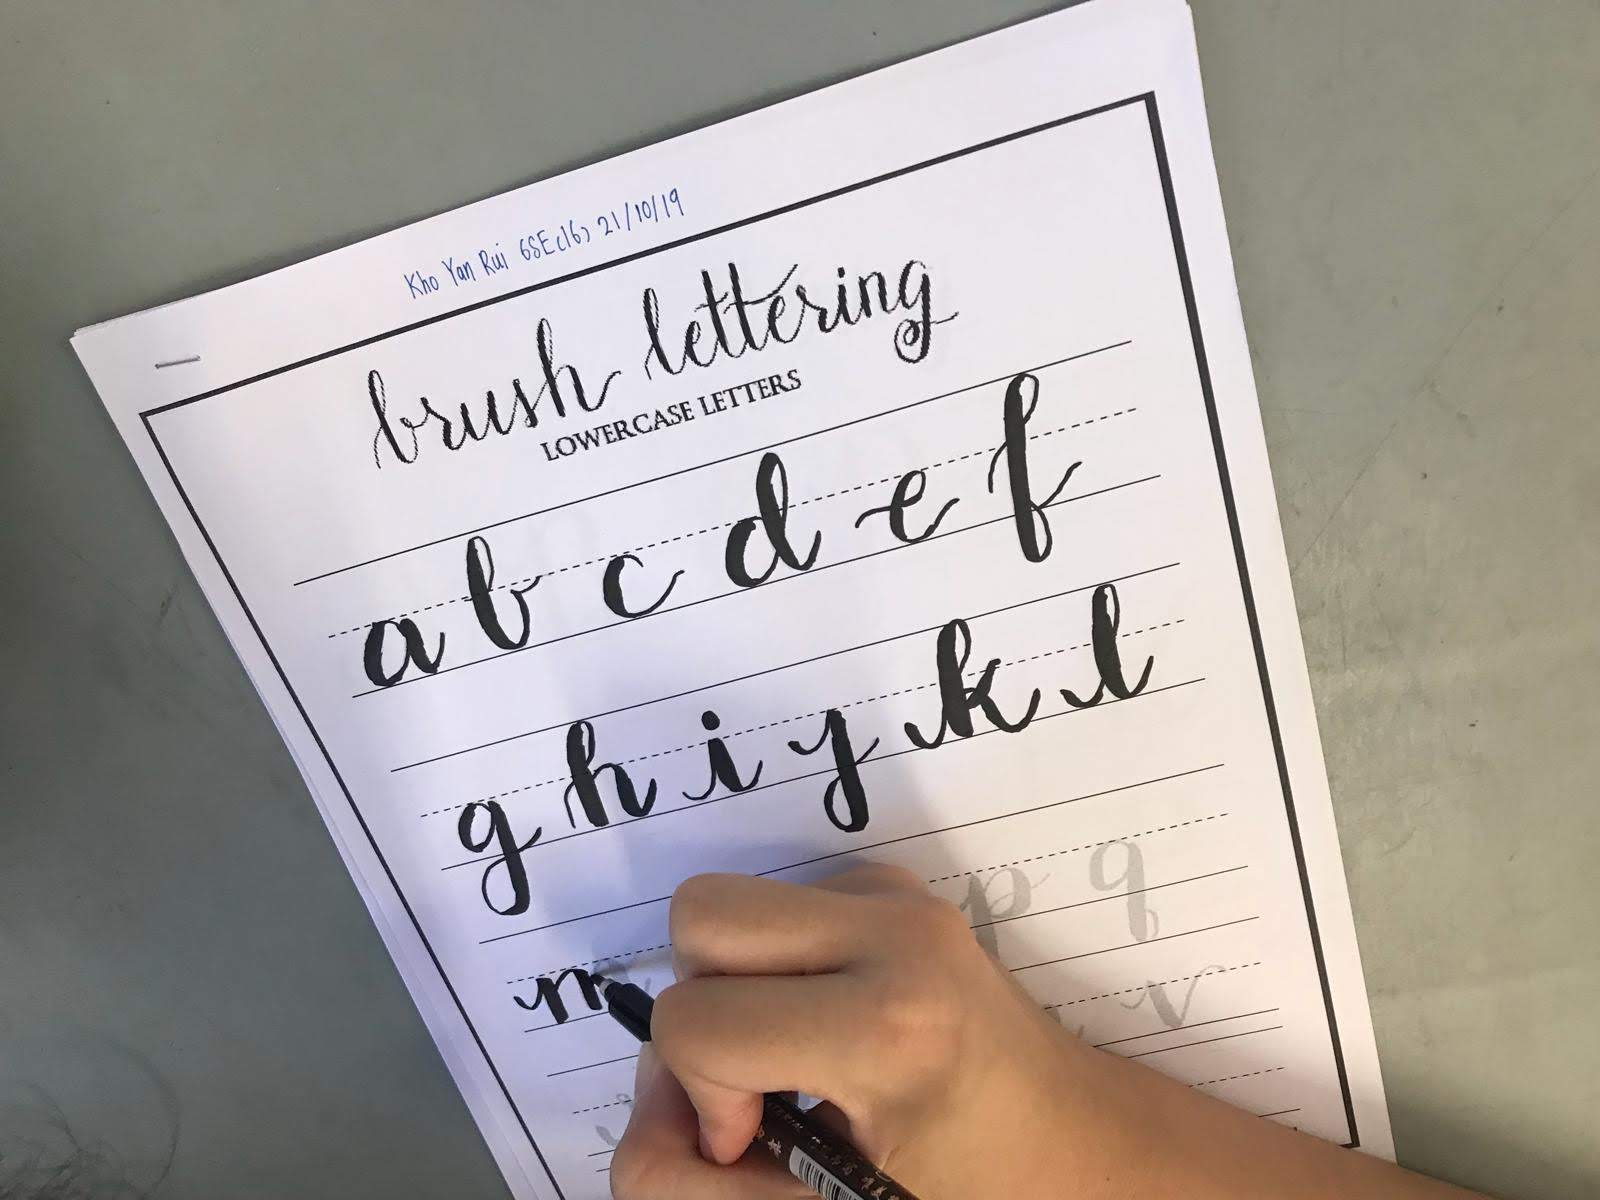 Kho Yan Rui 6SE(16) 21/10/19
brush lettering
LOWERCASE LETTERS
a b c d e f
g h i y k l
m p q
v